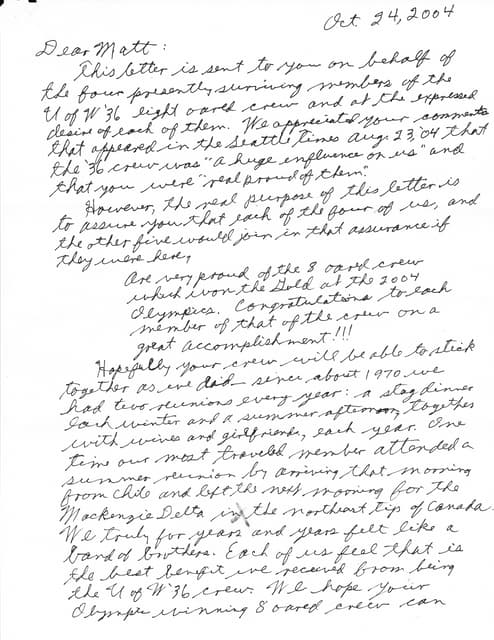 Oct. 24, 2004
Dear Matt:
This letter is sent to you on behalf of
the four presently surviving members of the
U of W '36 eight oared crew and at the expressed
desire of each of them. We appreciated your comments
that appeared in the Seattle Times Aug. 23, '04 that
the '36 crew was "a huge influence on us" and
that you were "real proud of them."
However, the real purpose of this letter is
to assure you that each of the four of us, and
the other five would join in that assurance if
they were here,
Are very proud of the 8 oared crew
which won the Gold at the 2004
Olympics. Congratulations to each
member of that of the crew on a
great accomplishment!!!
Hopefully your crew will be able to stick
together as we did - since about 1970 we
had two reunions every year: a stag dinner
each winter and a summer afternoon, together
with wives and girlfriends, each year. One
time our most traveled member attended a
summer reunion by arriving that morning
from Chile and left the next morning for the
Mackenzie Delta in the northeast tip of Canada.
We truly for years and years felt like a
band of brothers. Each of us feel that is
the best benefit we received from being
the U of W '36 crew. We hope your
Olympic winning 8 oared crew can